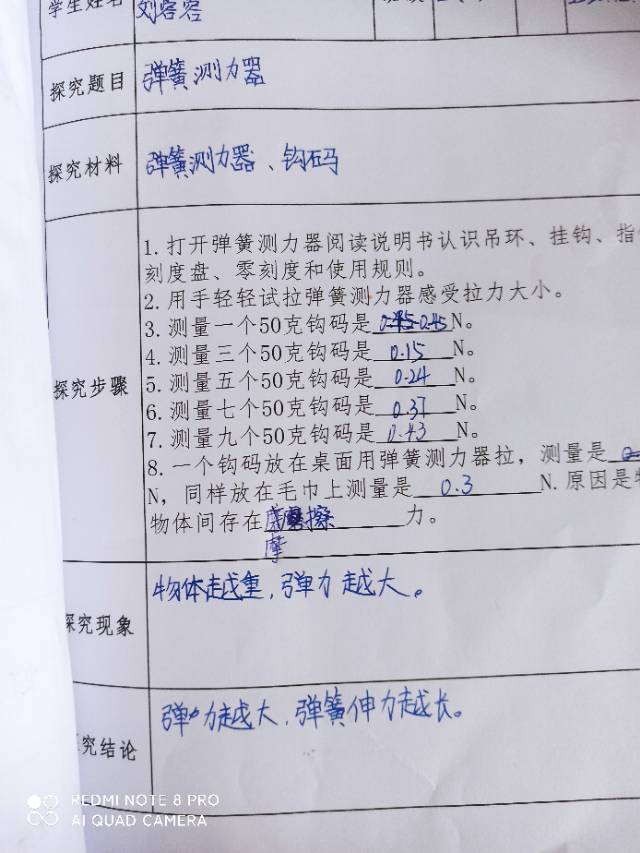 学生姓名
刘容容
探究题目 弹簧测力器
探究材料 弹簧测力器、钩码
1. 打开弹簧测力器阅读说明书认识吊环、挂钩、指
刻度盘、零刻度和使用规则。
2. 用手轻轻试拉弹簧测力器感受拉力大小。
3. 测量一个50克钩码是 0.45 N。
4. 测量三个50克钩码是 0.15 N。
探究步骤
5. 测量五个50克钩码是 0.24 N。
6. 测量七个50克钩码是 0.37 N。
7. 测量九个50克钩码是 0.43 N。
8. 一个钩码放在桌面用弹簧测力器拉，测量是
N，同样放在毛巾上测量是 0.3 N.原因是
物体间存在 擦 力。
摩
物体越重，弹力越大。
探究现象
弹力越大，弹簧伸力越长。
究结论
REDMI NOTE 8 PRO
AI QUAD CAMERA